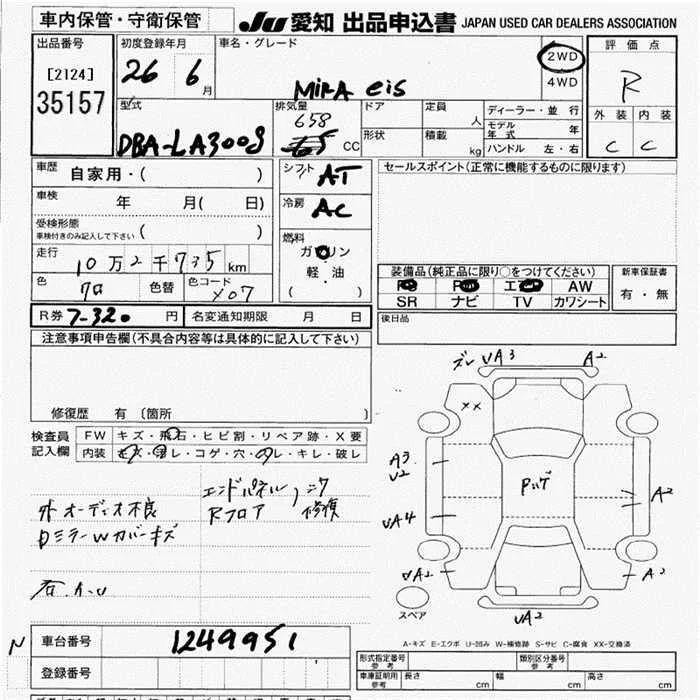 車内保管・守衛保管
JU 愛知 出品申込書 JAPAN USED CAR DEALERS ASSOCIATION
出品番号
[2124]
35157
初度登録年月
26 6 月
車名・グレード
MIRA eis
2WD
4WD
評価点
R
外装 内装
C C
型式
DBA-LA300S
排気量
658
CC
ドア
定員 人
形状
積載 kg
ディーラー・並行
モデル年式 年
ハンドル 左・右
車歴
自家用・( )
車検
年 月( 日)
受検形態
車検付きのみ記入して下さい ( )
走行
10万2千735km
色
クロ
色替
色コード
X07
シフト
AT
冷房
AC
燃料
ガソリン
軽・油
( )
セールスポイント(正常に機能するものに限ります)
装備品(純正品に限り○をつけてください)
AW
SR ナビ TV カワシート
新車保証書
有・無
後日品
R券 円
名変通知期限 月 日
注意事項申告欄(不具合内容等は具体的に記入して下さい)
修復歴 有 〔箇所 〕
検査員
記入欄
FW キズ・飛石・ヒビ割・リペア跡・X要
内装 キズ・ヨゴレ・コゲ・穴・スレ・キレ・破レ
外オーディオ不良
エンドパネル
Rフロア
修復
ミラーWカバーキズ
ズレ UA3
A2
XX
A3
U2
UA4
A2
A2
UA2
スペア
A-キズ E-エクボ U-凹み W-補修跡 S-サビ C-腐食 XX-交換済
N
車台番号
1249951
登録番号
形式指定番号 参考
類別区分番号 参考
車庫証明用 参考
長さ cm
幅 cm
高さ cm